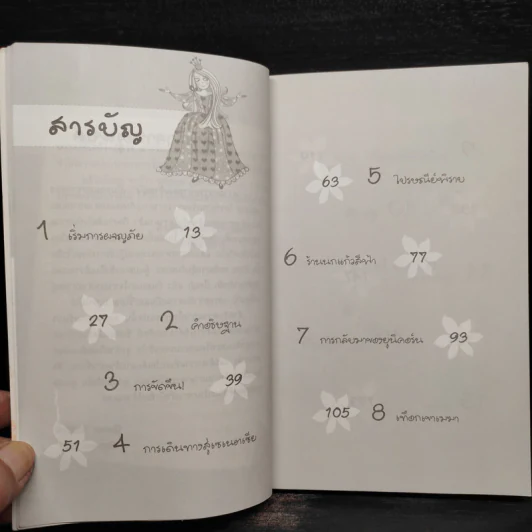 สารบัญ
1 เริ่มการผจญภัย 13
27 2 คำอธิษฐาน
3 การขัดขืน! 39
51 4 การเดินทางสู่เซเนดาเซีย
63 5 ไปรษณีย์พิราบ
6 ร้านนกแก้วสีฟ้า 77
7 การกลับมาของยูนิคอร์น 93
105 8 เทือกเขาเมมา